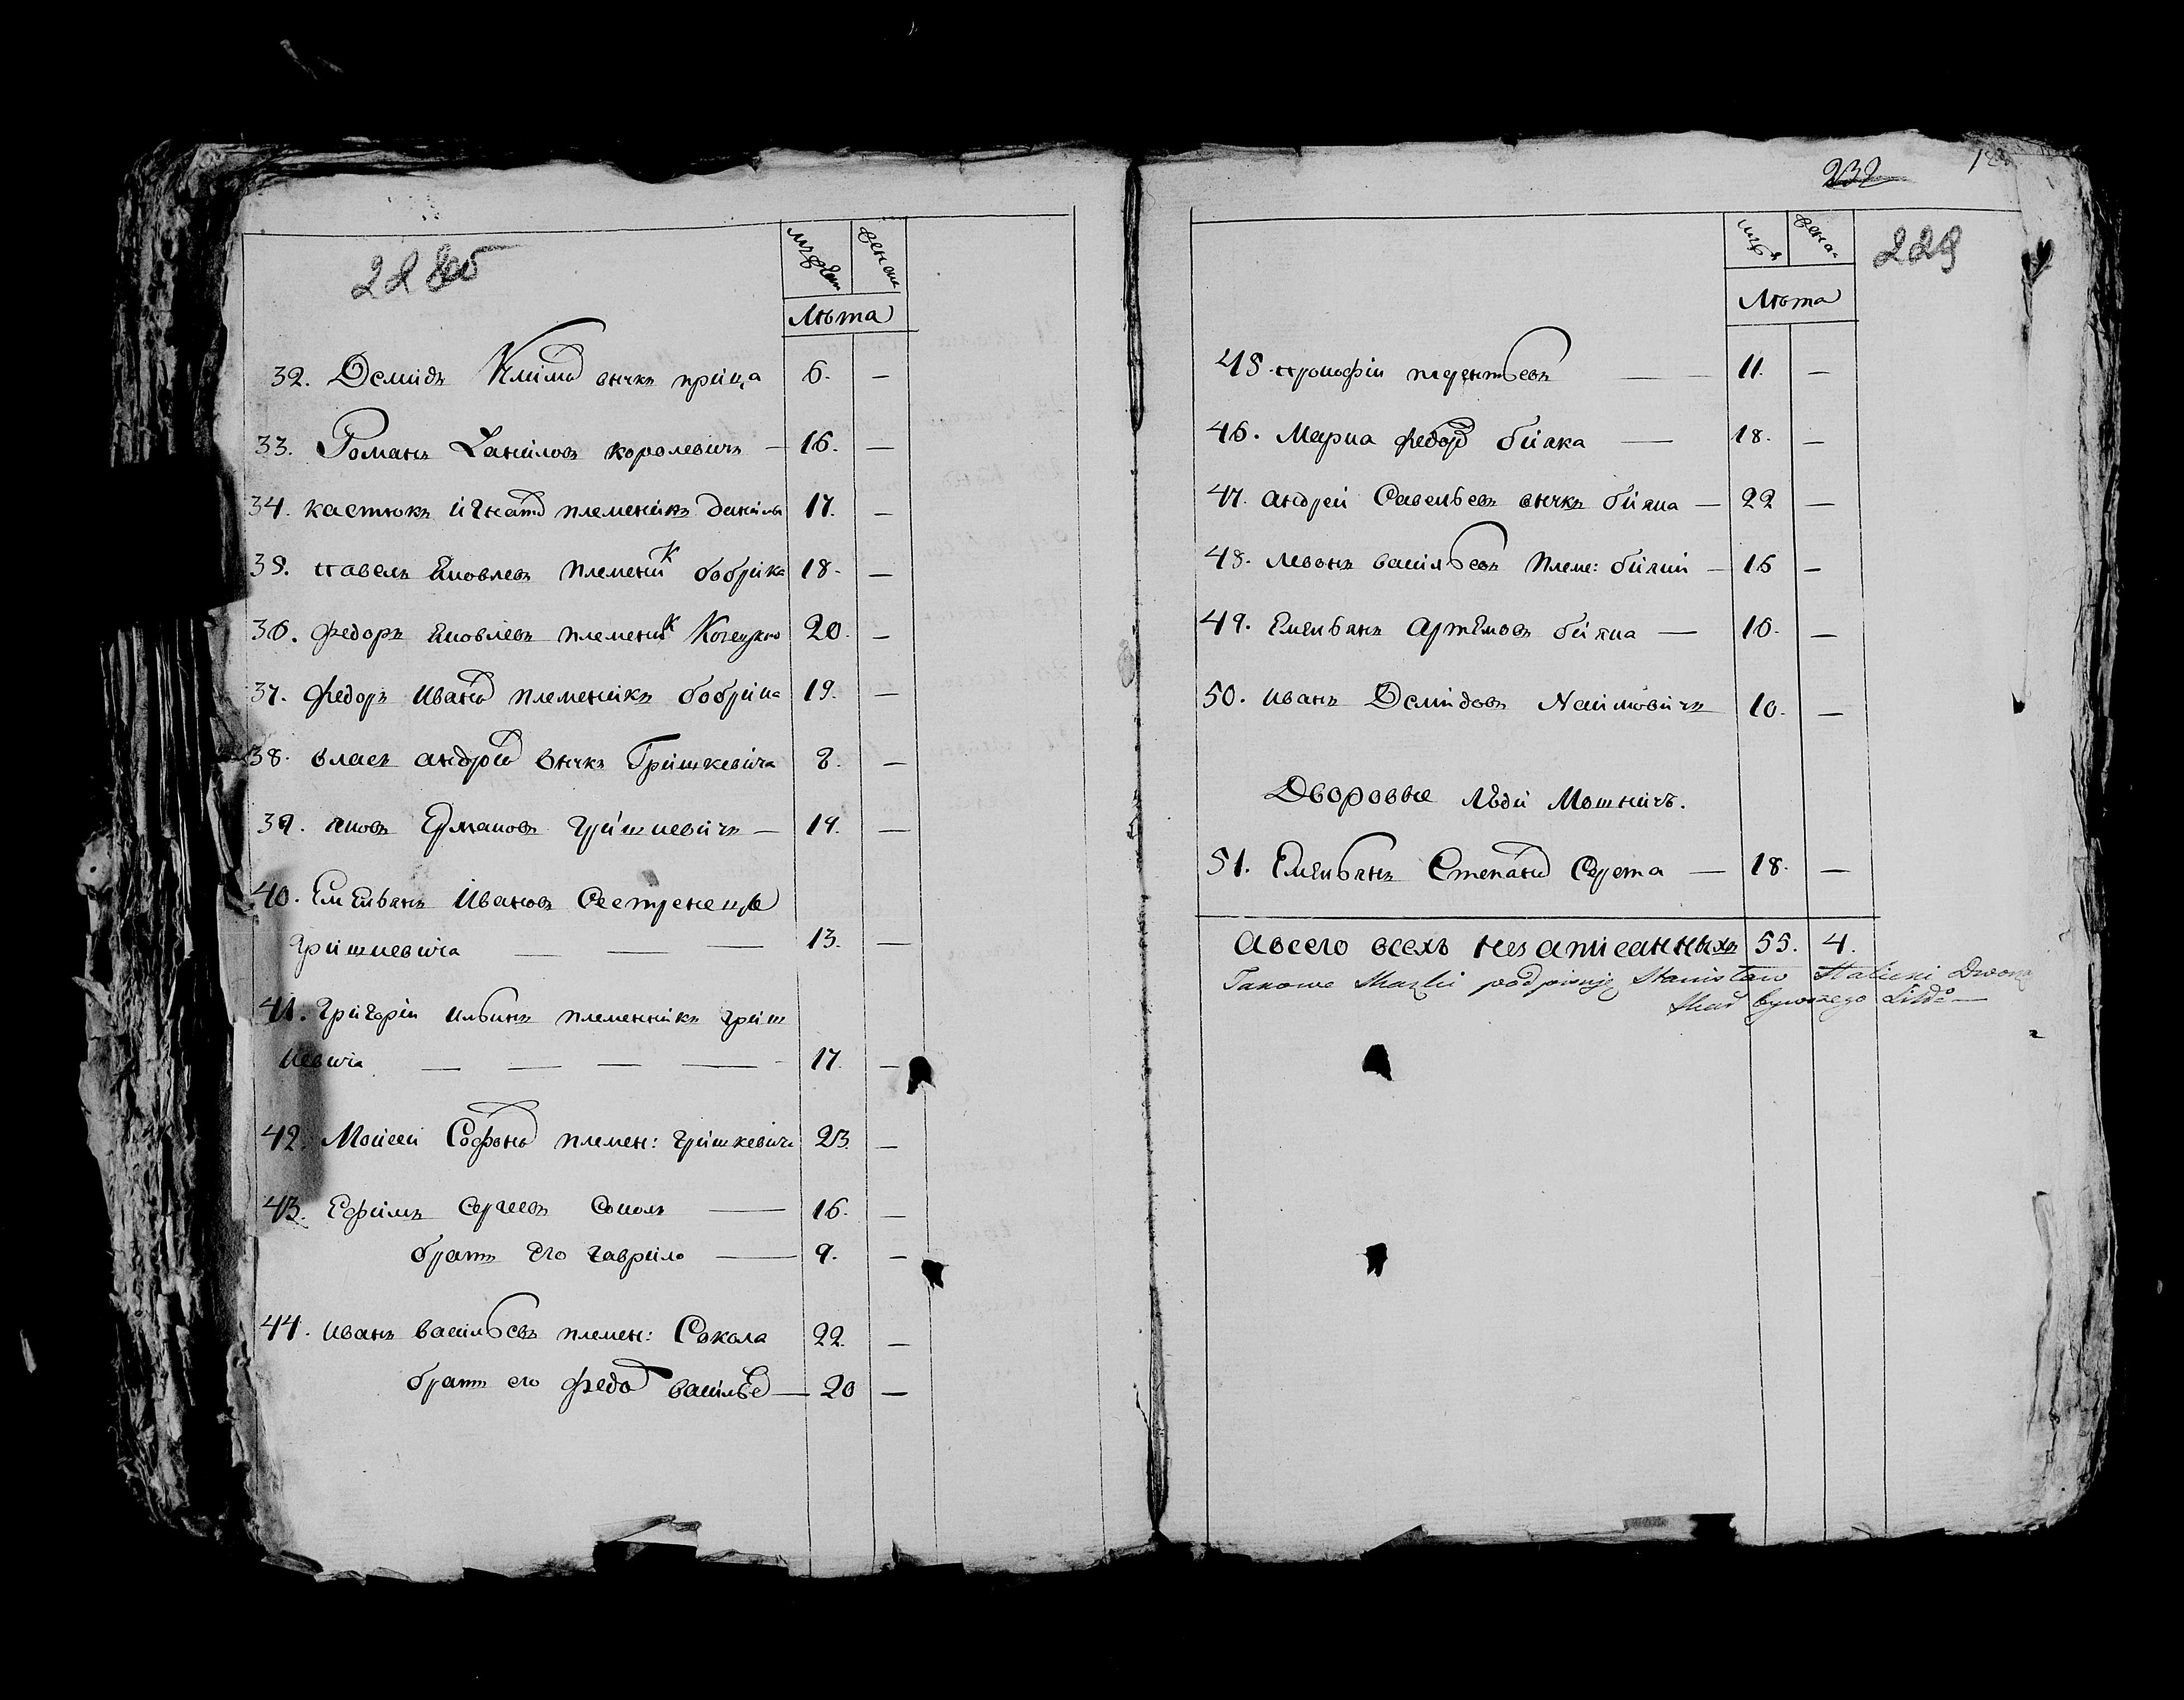 228об
мужеск женска
Лѣта
32. Демидъ Клима внукъ прица 6. —
33. Романъ Данилов королевичъ — 16. —
34. Кастюкъ Игнатов племеникъ данила 17. —
35. павелъ Яковлевъ племеник бобрика 18. —
36. Федоръ Яковлевъ племеник 20. —
37. Федоръ Иванов племеникъ бобрика 19. —
38. власъ андрев внукъ Гришкевича 8. —
39. яковъ Ермаковъ Гришкевичъ — 14. —
40. Емельянъ Ивановъ Сестренецъ
Гришкевича — — — 13. —
41. Григорій Ильинъ племенникъ гриш
кевича — — — — 17. —
42. Мойсей Софонов племен: гришкевича 23. —
43. Ефимъ Сергеевъ Соколъ — 16. —
братъ Его гаврило — 9. —
44. иванъ васильевъ племен: Сокола 22. —
братъ его федо васильев — 20 —
232
229
женска
Лѣта
45. прокофій терентьевъ — 11. —
46. Марка федор біяка — 18. —
47. андрей Савельевъ внукъ біяка — 22 —
48. левонъ васильевъ племе: біяки — 16 —
49. Емельянъ Артемовъ біяка — 10. —
50. иванъ Демидовъ 10. —
Дворовые люди Мошничъ.
51. Емельянъ Степанов Серета — 18. —
Авсего всехъ незаписанныхъ 55. 4.
Takowe Skazki podpisuję Stanisław
bywszego